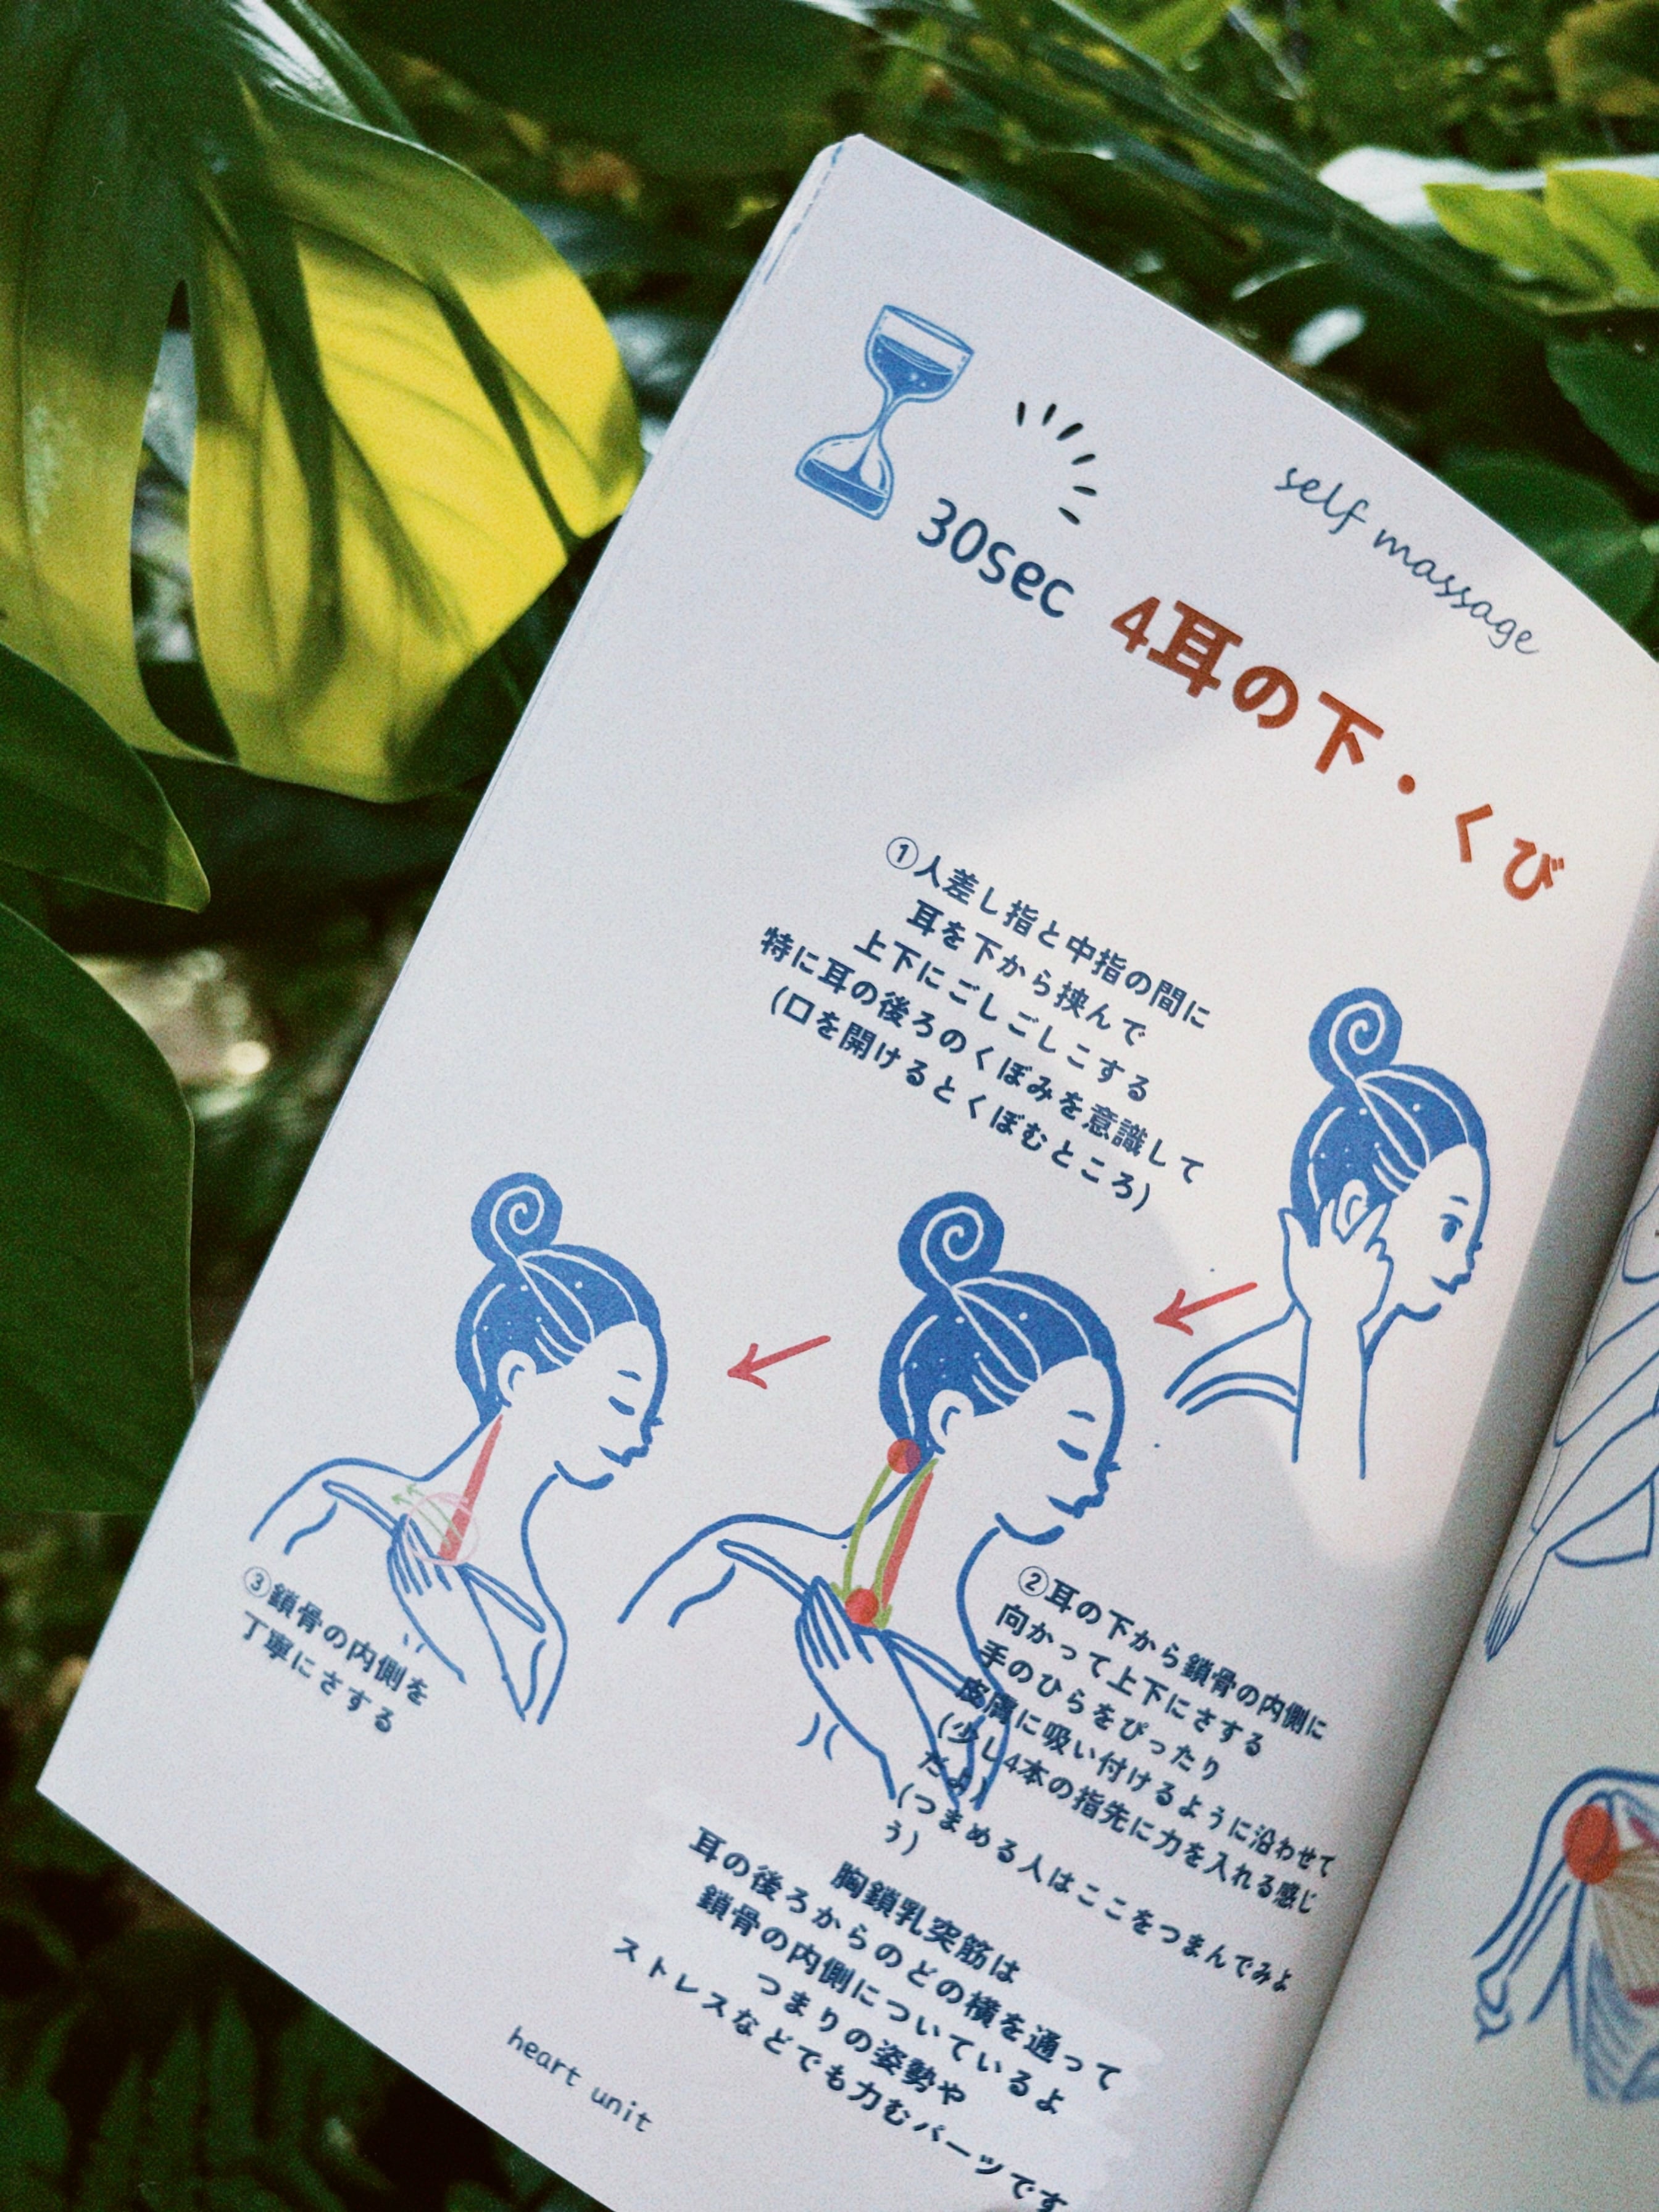 self massage
30sec
4耳の下・くび
①人差し指と中指の間に
耳を下から挟んで
上下にごしごしこする
特に耳の後ろのくぼみを意識して
(口を開けるとくぼむところ)
②耳の下から鎖骨の内側に
向かって上下にさする
手のひらをぴったり
皮膚に吸い付けるように沿わせて
(少し4本の指先に力を入れる感じ
だよ)
(つまめる人はここをつまんでみよ
う)
③鎖骨の内側を
丁寧にさする
胸鎖乳突筋は
耳の後ろからのどの横を通って
鎖骨の内側についているよ
つまりの姿勢や
ストレスなどでも力むパーツです
heart unit